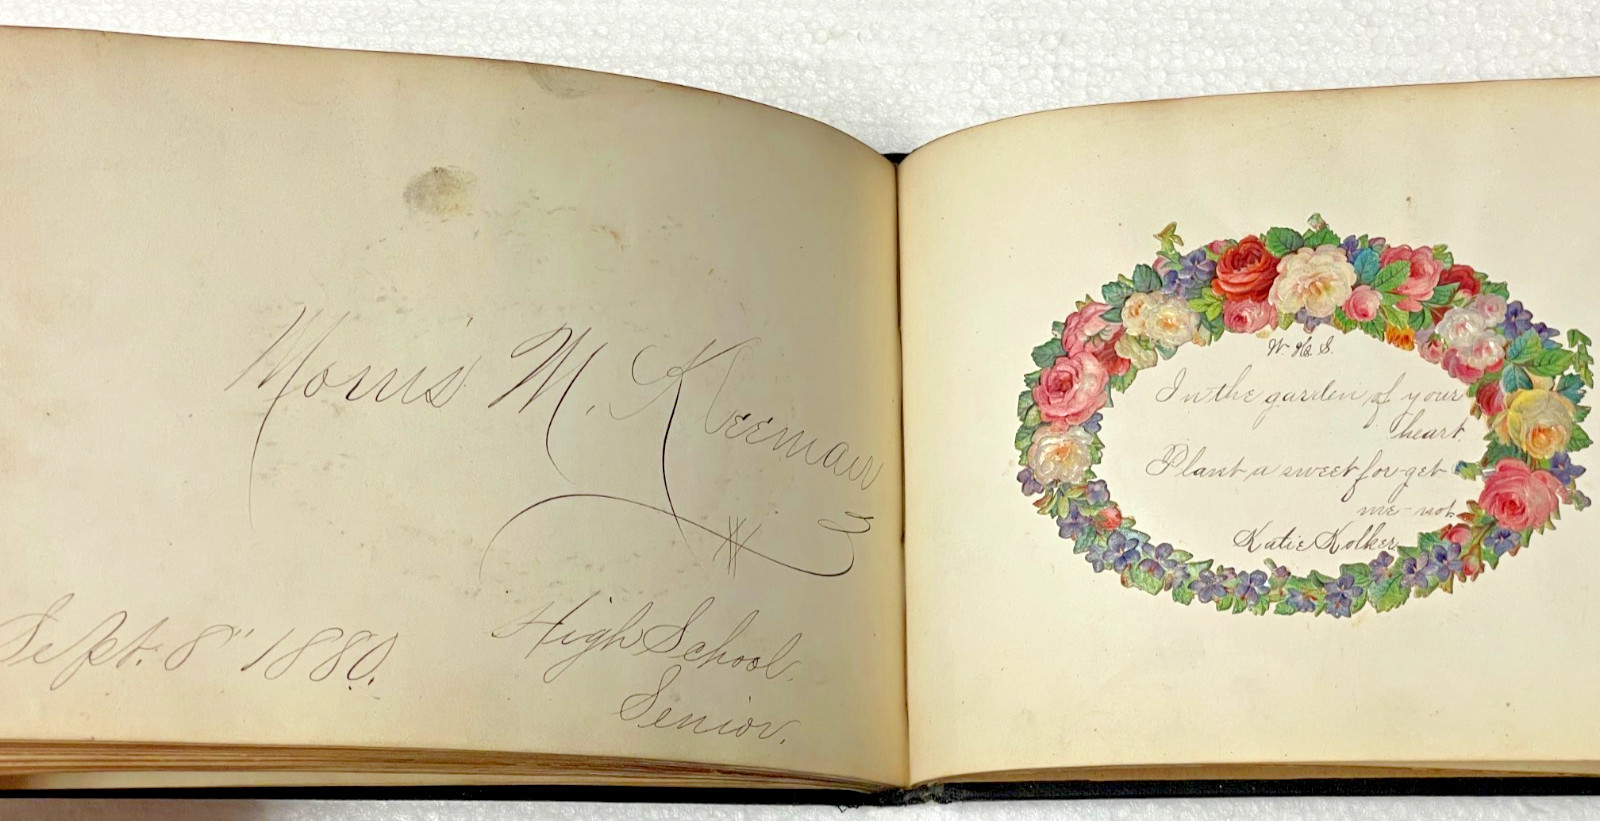 Morris M. Kleeman
Sept. 8" 1880.
High School.
Senior.
W. H. S.
In the garden of your
heart
Plant a sweet for-get
me-not.
Katie Kolker